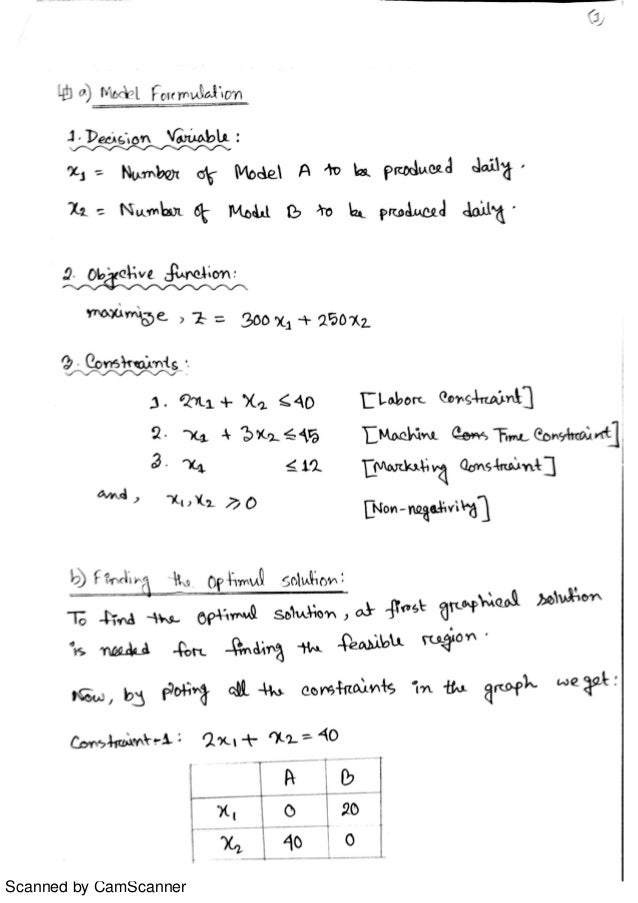 (1)
4) a) Model Formulation
1. Decision Variable:
x1 = Number of Model A to be produced daily.
x2 = Number of Model B to be produced daily.
2. Objective function:
maximize, Z = 300x1 + 250x2
3. Constraints:
1. 2x1 + x2 ≤ 40 [Labore Constraint]
2. x1 + 3x2 ≤ 45 [Machine Cons Time Constraint]
3. x1 ≤ 12 [Marketing Constraint]
and, x1, x2 ≥ 0 [Non-negativity]
b) Finding the optimul solution:
To find the optimul solution, at first graphical solution
is needed for finding the feasible region.
Now, by ploting all the constraints in the graph we get:
Constraint-1: 2x1 + x2 = 40
A B
x1 0 20
x2 40 0
Scanned by CamScanner